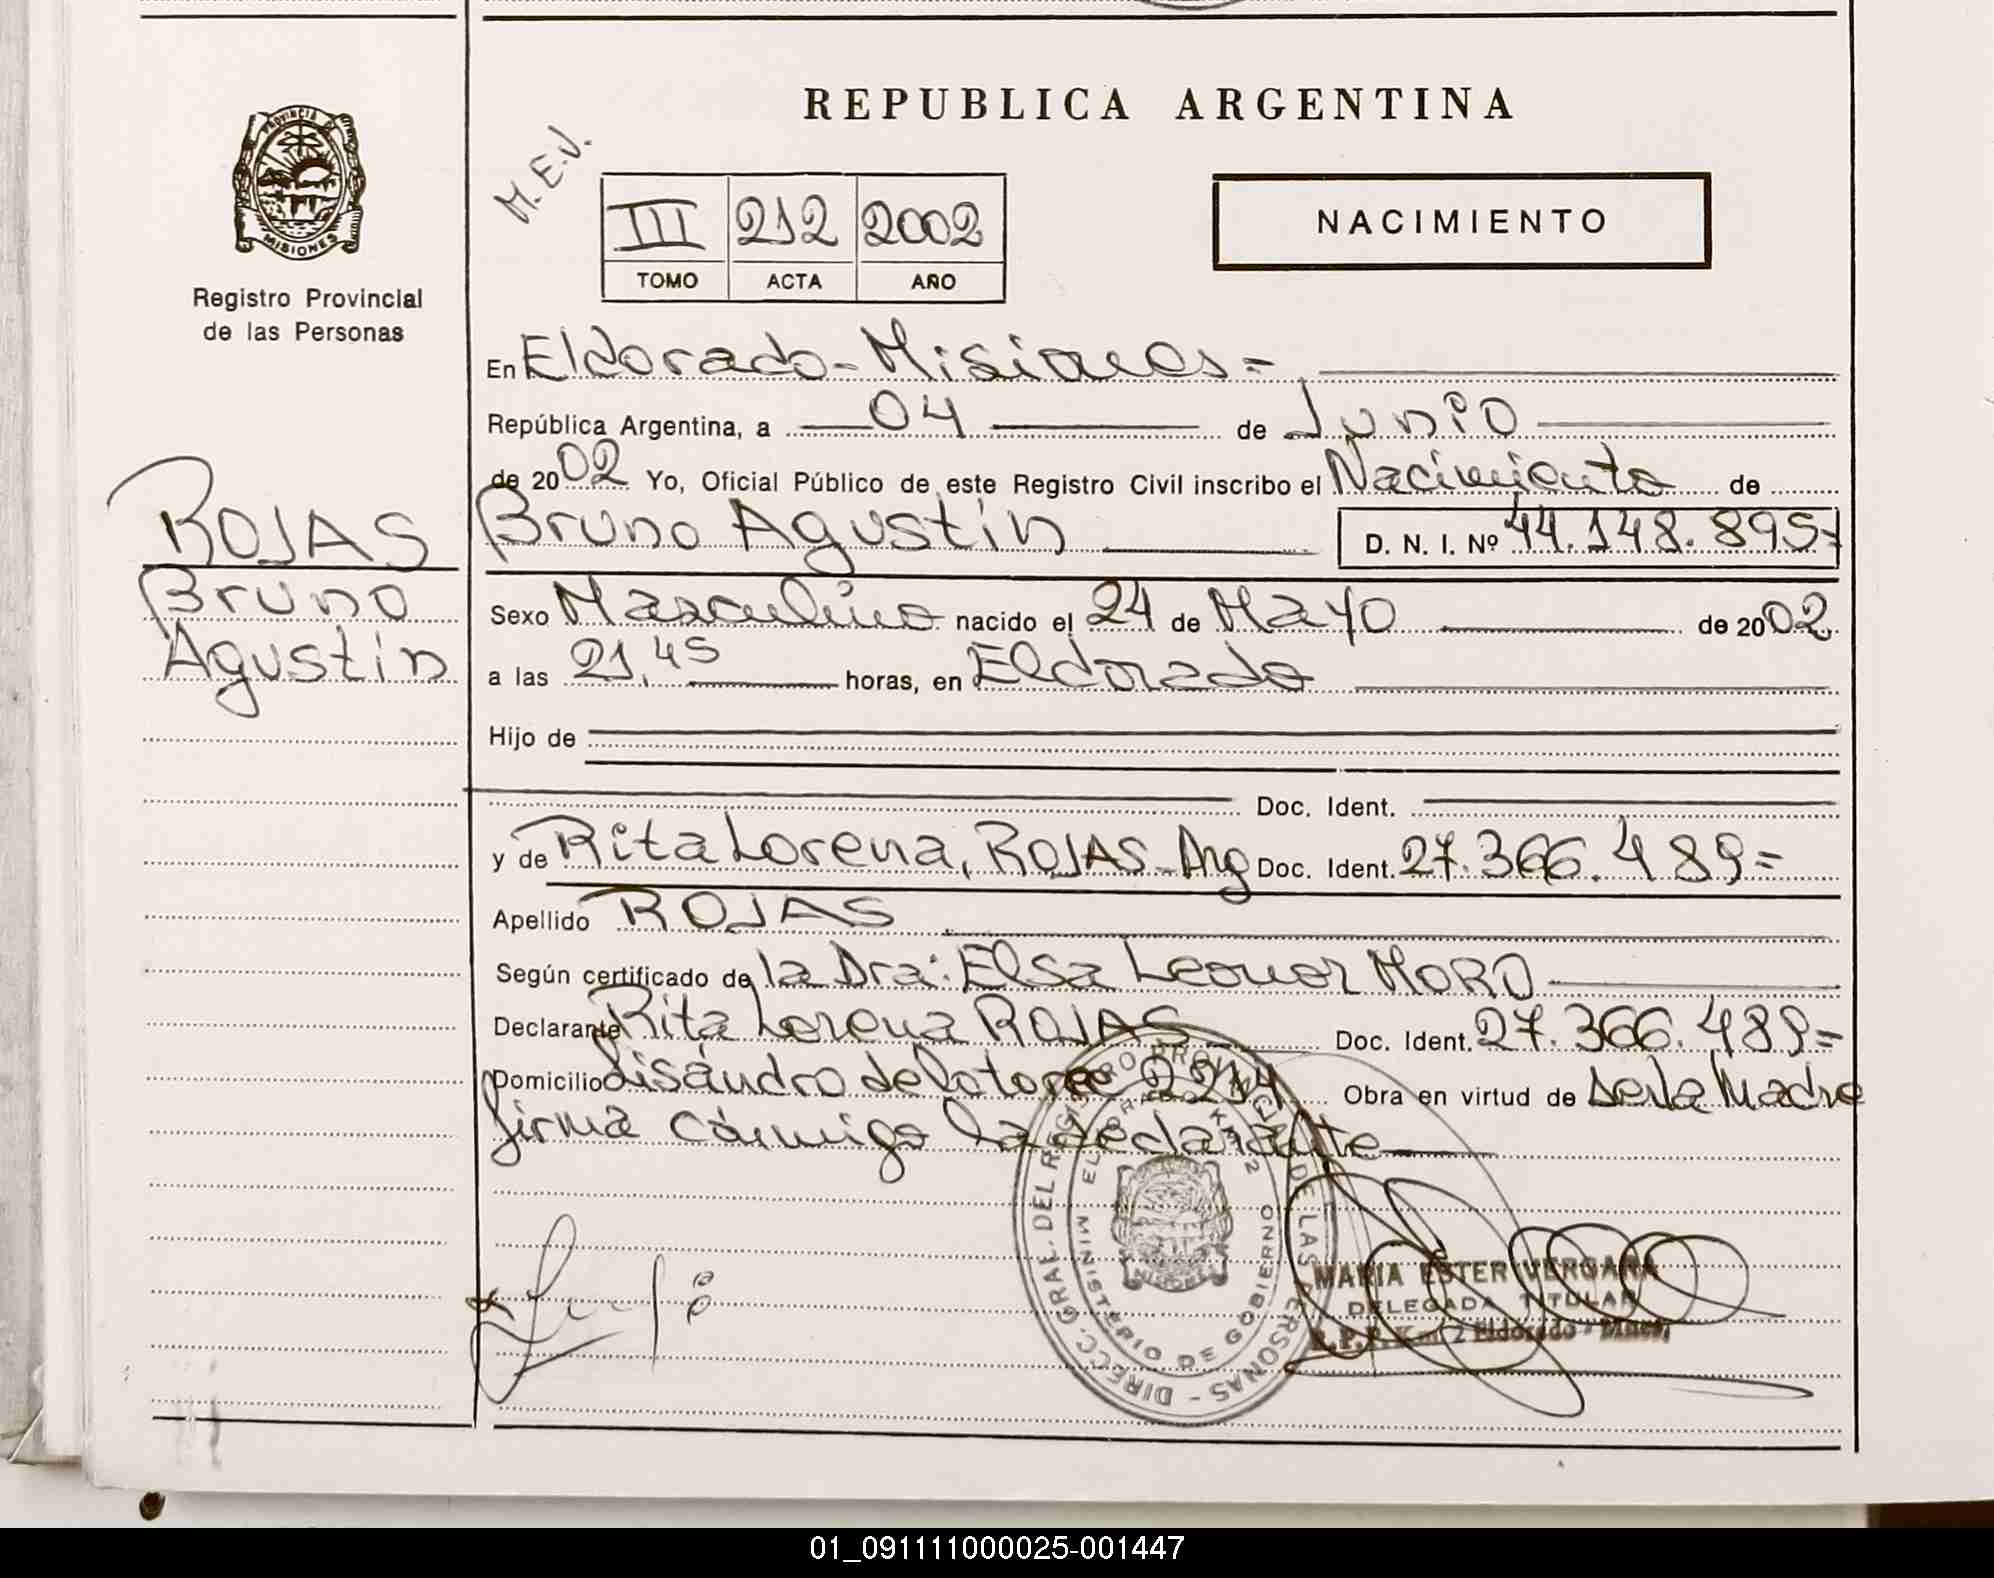 REPUBLICA ARGENTINA
PROVINCIA DE
MISIONES
Registro Provincial
de las Personas
M.E.J.
III 212 2002
TOMO ACTA AÑO
NACIMIENTO
En Eldorado - Misiones =
República Argentina, a 04 de Junio
de 2002 Yo, Oficial Público de este Registro Civil inscribo el Nacimiento de
Bruno Agustín D. N. I. Nº 44.148.895-
ROJAS
Bruno
Agustín
Sexo Masculino nacido el 24 de Mayo de 2002
a las 21,45 horas, en Eldorado
Hijo de
Doc. Ident.
y de Rita Lorena, ROJAS - Arg Doc. Ident. 27.366.489=
Apellido ROJAS
Según certificado de la Dra: Elsa Leonor MORO
Declarante Rita Lorena ROJAS Doc. Ident. 27.366.489=
Domicilio Lisandro de la torre 2214 Obra en virtud de Ser la Madre
firma conmigo la declarante
DIRECC. GRAL. DEL REGISTRO PROVINCIAL DE LAS PERSONAS -
MINISTERIO DE GOBIERNO
ELDORADO KM 2
MISIONES
MARIA ESTER VERGARA
DELEGADA TITULAR
R.P.P. Km 2 Eldorado - Mnes.
01_091111000025-001447